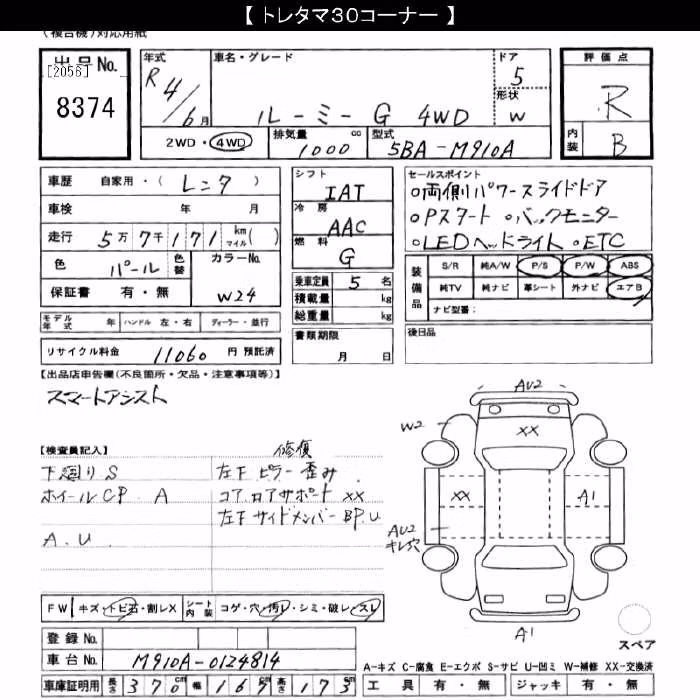 【 トレタマ30コーナー 】
(複合機)対応用紙
出品No.
[2056]
8374
年式 R 4/6月
車名・グレード
ルーミー G 4WD
ドア 5
形状 W
評価点 R
内装 B
2WD・4WD
排気量 1000 cc
型式 5BA-M910A
車歴 自家用・(レンタ)
車検 年 月
走行 5万7千171 km マイル( )
色 パール 色替
カラーNo. W24
保証書 有・無
シフト IAT
冷房 AAC
燃料 G
乗車定員 5 名
積載量 kg
総重量 kg
書類期限
月 日
セールスポイント
○両側パワースライドドア
○Pスタート ○バックモニター
○LEDヘッドライト ○ETC
装備品
S/R 純A/W P/S P/W ABS
純TV 純ナビ 革シート 外ナビ エアB
ナビ型番:
後日品
モデル年式 年 ハンドル 左・右 ディーラー・並行
リサイクル料金 11060 円 預託済
【出品店申告欄(不良箇所・欠品・注意事項等)】
スマートアシスト
【検査員記入】
下廻りS
ホイールCP A
A.U
修復
左下ピラー歪み
コア.ロアサポート XX
左下サイドメンバーBP.U
AU2
W2
XX
XX
A1
AU2
キレ穴
A1
スペア
FW キズ・トビ石・割レX
シート内装 コゲ・穴・汚レ・シミ・破レ・スレ
登録No.
車台No. M910A-0124814
車庫証明用 長さ 370cm 幅 167cm 高さ 173cm
A-キズ C-腐食 E-エクボ S-サビ U-凹ミ W-補修 XX-交換済
工具 有・無 ジャッキ 有・無